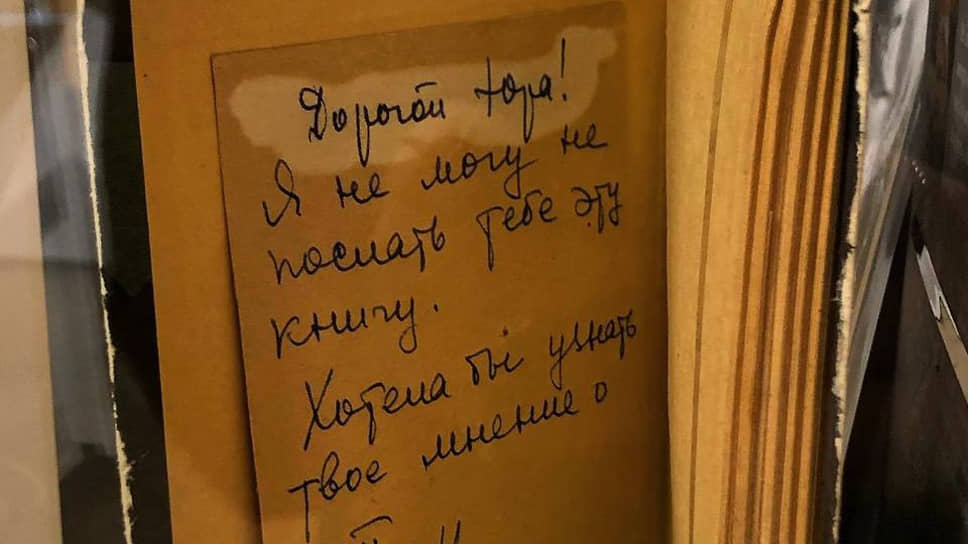 Дорогой Юра!
Я не могу не
послать тебе эту
книгу.
Хотела бы узнать
твое мнение о